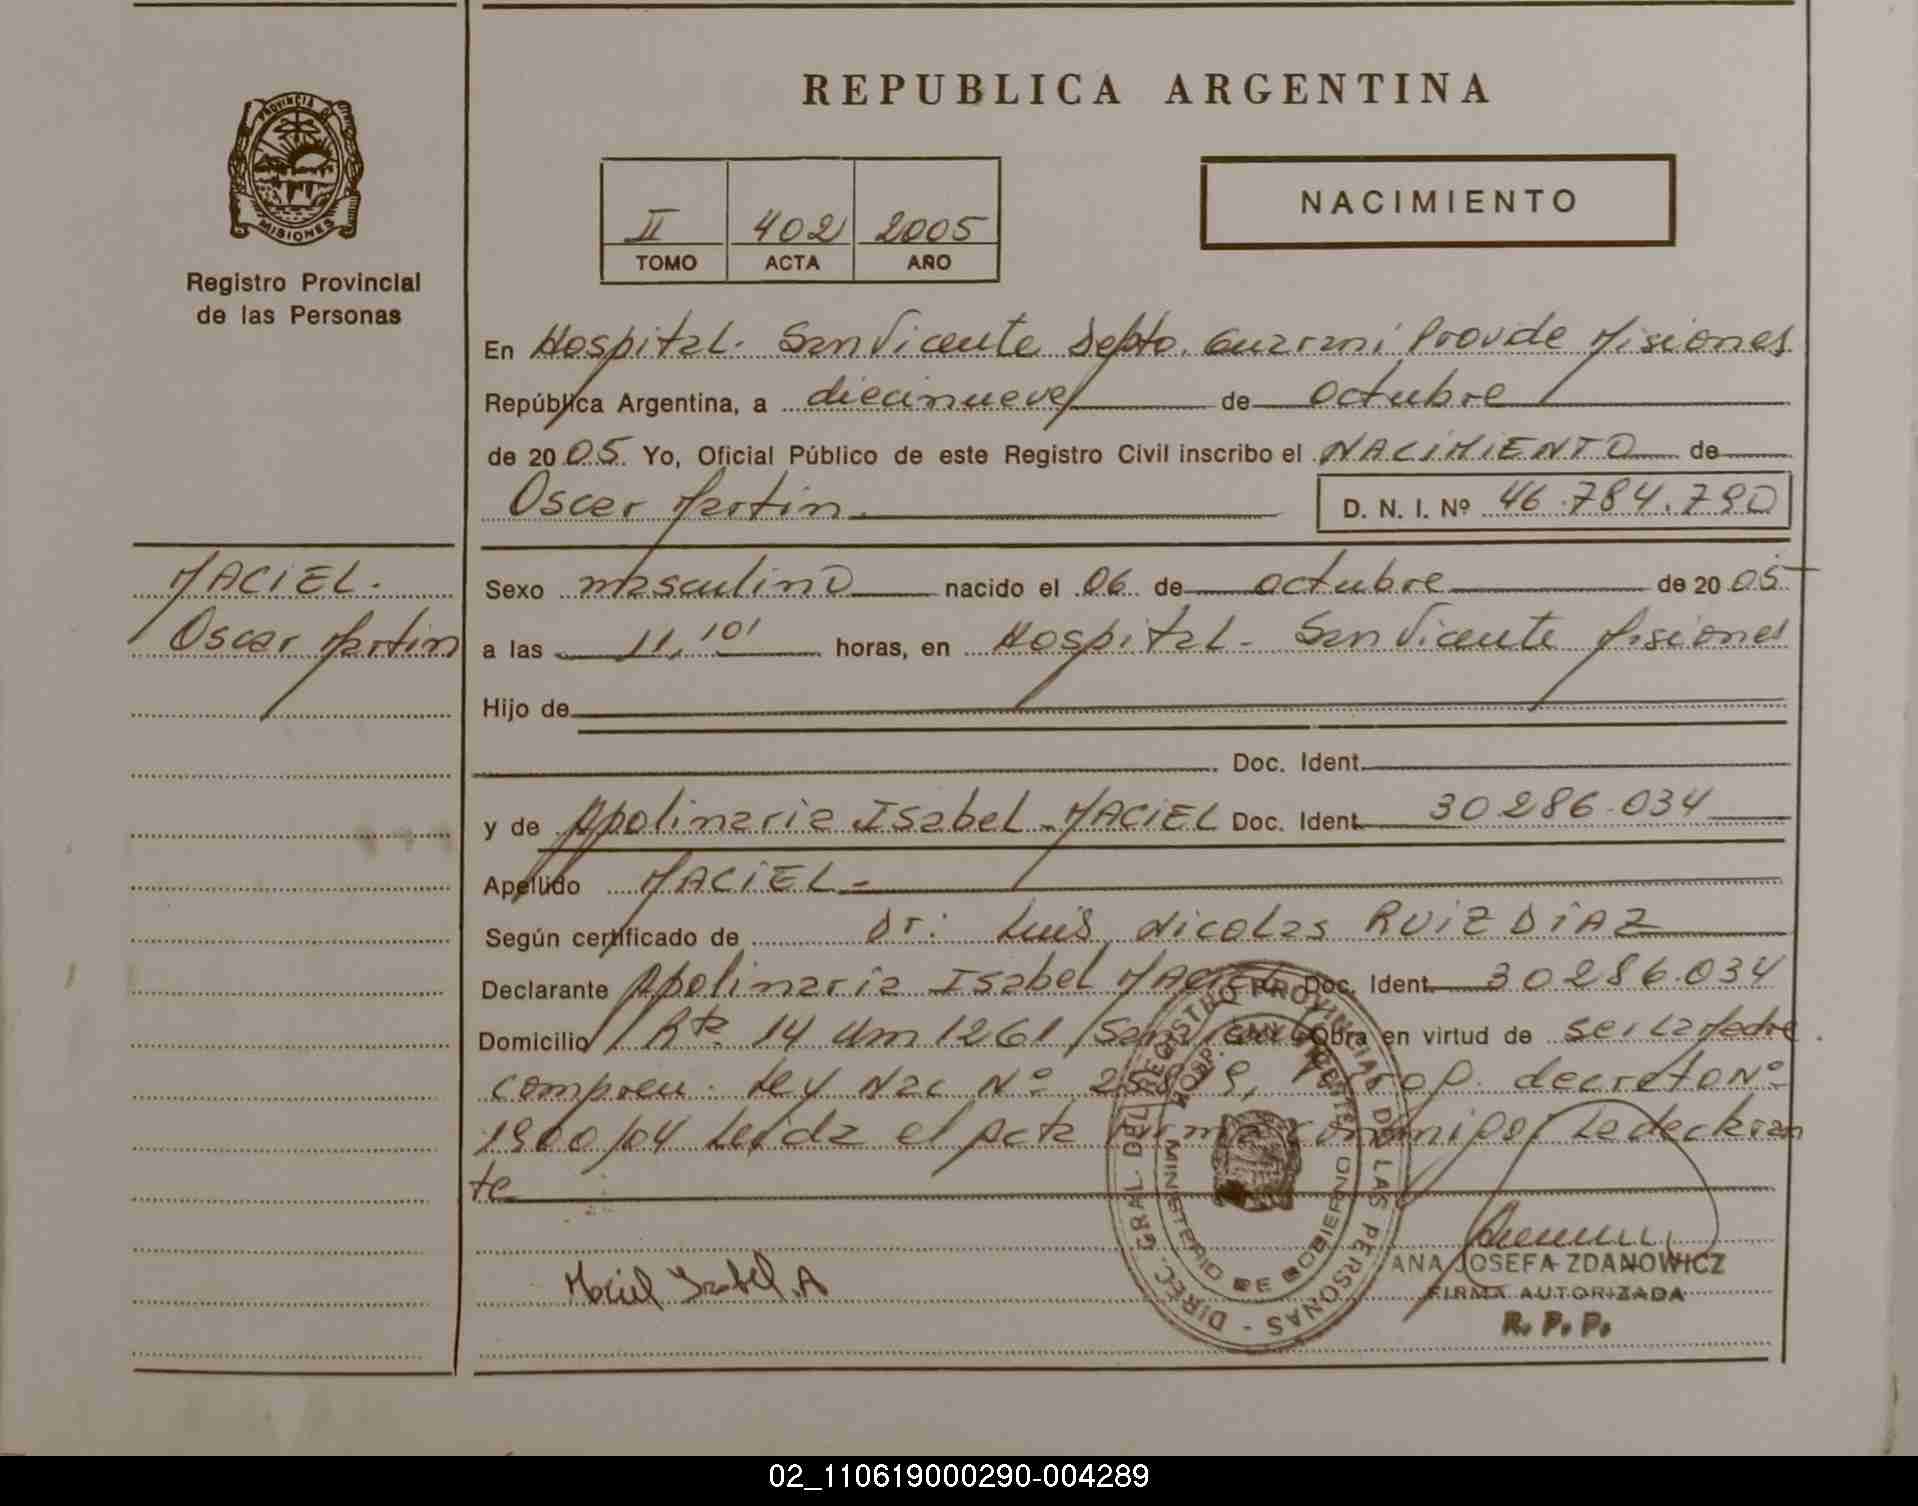 PROVINCIA DE
MISIONES
Registro Provincial
de las Personas
REPUBLICA ARGENTINA
II 402 2005
TOMO ACTA AÑO
NACIMIENTO
En Hospital. San Vicente Depto. Guarani, Prov de Misiones
República Argentina, a diecinueve de octubre
de 2005 Yo, Oficial Público de este Registro Civil inscribo el NACIMIENTO de
Oscar Martin
D. N. I. Nº 46.784.790
MACIEL.
Oscar Martin
Sexo masculino nacido el 06 de octubre de 2005
a las 11,10' horas, en Hospital - San Vicente Misiones
Hijo de
Doc. Ident.
y de Apolinaria Isabel - MACIEL Doc. Ident. 30286.034
Apellido MACIEL -
Según certificado de Dr: Luis Nicolas RUIZ DIAZ
Declarante Apolinaria Isabel MACIEL Doc. Ident. 30286.034
Domicilio Rta 14 Km 1261 San Vicente Obra en virtud de ser la Madre
compren. Ley Nac Nº decreto Nº
1900/04 Leida el Acta firma conmigo la declaran
te
Maciel Isabel. A
DIREC. GRAL. DEL REGISTRO PROVINCIAL DE LAS PERSONAS -
MINISTERIO DE GOBIERNO
ANA JOSEFA ZDANOWICZ
FIRMA AUTORIZADA
R. P. P.
02_110619000290-004289